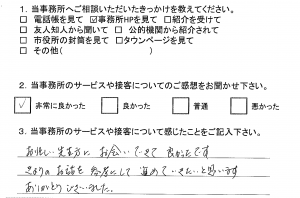 1. 当事務所へご相談いただいたきっかけを教えてください。
□ 電話帳を見て ☑事務所HPを見て □紹介を受けて
□ 友人知人から聞いて □ 公的機関から紹介されて
□ 市役所の封筒を見て □タウンページを見て
□ その他( )
2. 当事務所のサービスや接客についてのご感想をお聞かせ下さい。
✓ 非常に良かった 良かった 普通 悪かった
3. 当事務所のサービスや接客について感じたことをご記入下さい。
お優しい先生方に お会いできて 良かったです
お話を 参考にして 進めていきたいと思います
ありがとうございました。